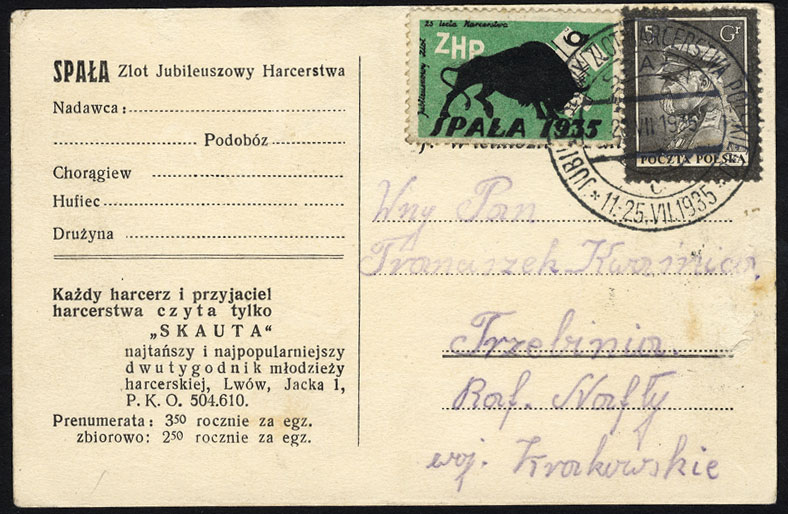 SPAŁA Zlot Jubileuszowy Harcerstwa
Nadawca:
Podobóz
Chorągiew
Hufiec
Drużyna
Każdy harcerz i przyjaciel
harcerstwa czyta tylko
„SKAUTA“
najtańszy i najpopularniejszy
dwutygodnik młodzieży
harcerskiej, Lwów, Jacka 1,
P. K. O. 504.610.
Prenumerata: 3⁵⁰ rocznie za egz.
zbiorowo: 2⁵⁰ rocznie za egz.
25 lecia Harcerstwa
Jubileuszowy Zlot
ZHP
SPAŁA 1935
5 Gr
POCZTA POLSKA
ZLOT HARCERSTWA
11-25.VII.1935
Wny Pan
Franciszek
Trzebinia.
Raf. Nafty
woj. Krakowskie